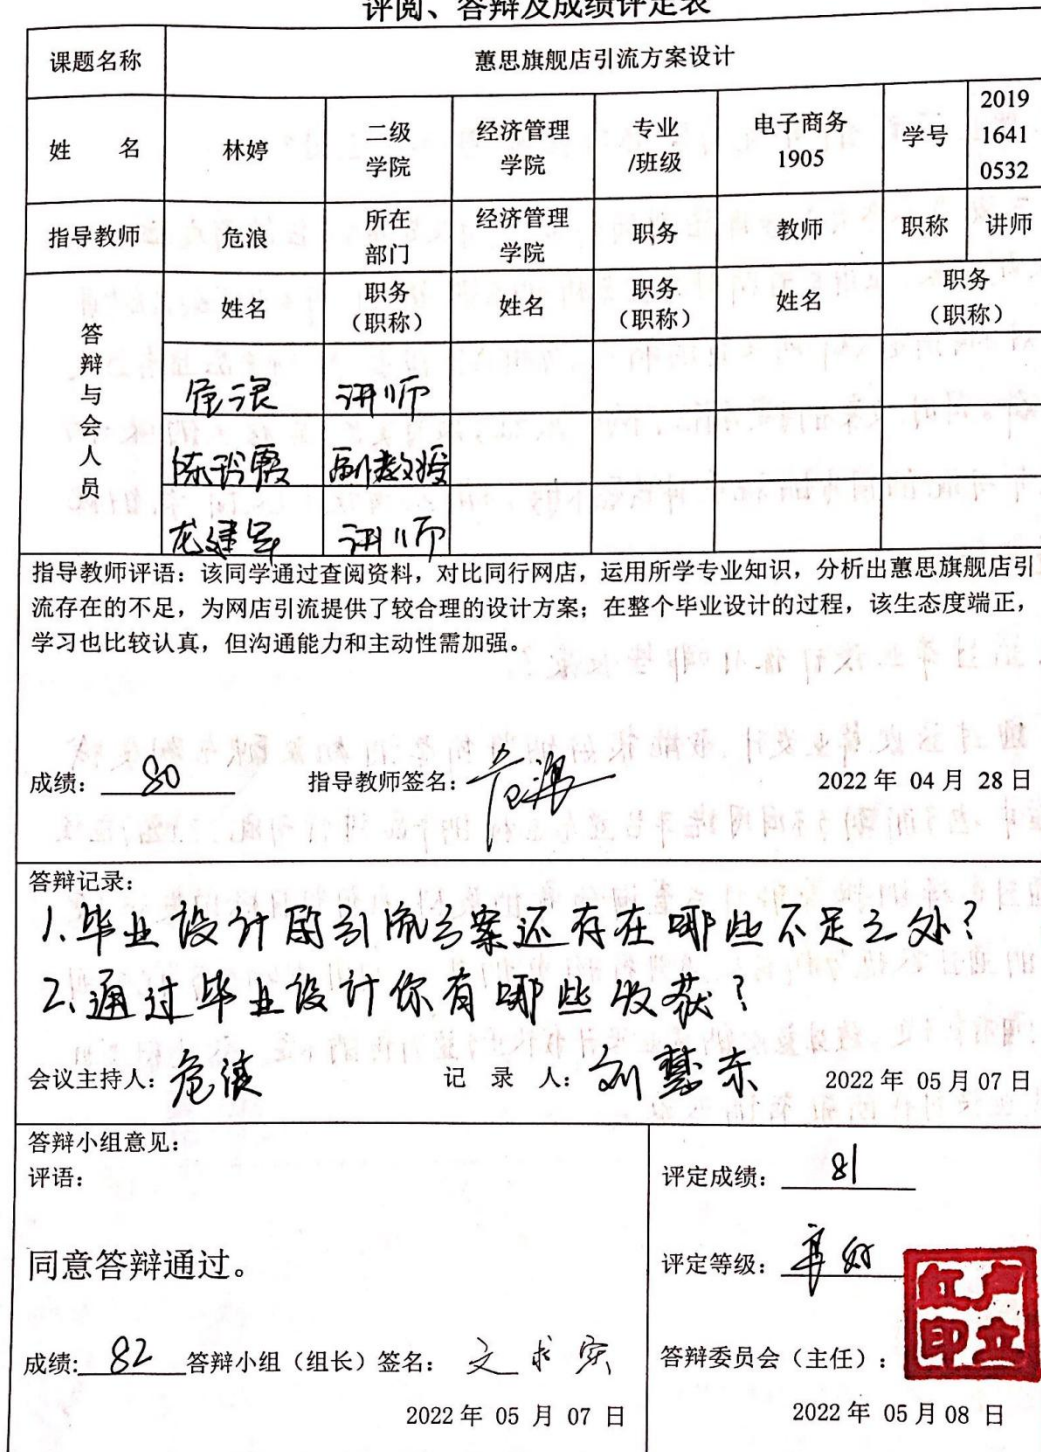 评阅、答辩及成绩评定表
课题名称 蕙思旗舰店引流方案设计
姓 名 林婷 二级学院 经济管理学院 专业/班级 电子商务1905 学号 2019 1641 0532
指导教师 危浪 所在部门 经济管理学院 职务 教师 职称 讲师
答辩与会人员 姓名 职务（职称） 姓名 职务（职称） 姓名 职务（职称）
危浪 讲师
陈玲霞 副教授
龙建军 讲师
指导教师评语：该同学通过查阅资料，对比同行网店，运用所学专业知识，分析出蕙思旗舰店引
流存在的不足，为网店引流提供了较合理的设计方案；在整个毕业设计的过程，该生态度端正，
学习也比较认真，但沟通能力和主动性需加强。
成绩：80 指导教师签名：危浪 2022 年 04 月 28 日
答辩记录：
1.毕业设计的引流方案还存在哪些不足之处？
2.通过毕业设计你有哪些收获？
会议主持人：危浪 记 录 人：刘慧东 2022 年 05 月 07 日
答辩小组意见：
评语：
同意答辩通过。
成绩：82 答辩小组（组长）签名：文求实
2022 年 05 月 07 日
评定成绩：81
评定等级：良好
答辩委员会（主任）：卢立红印
2022 年 05 月 08 日